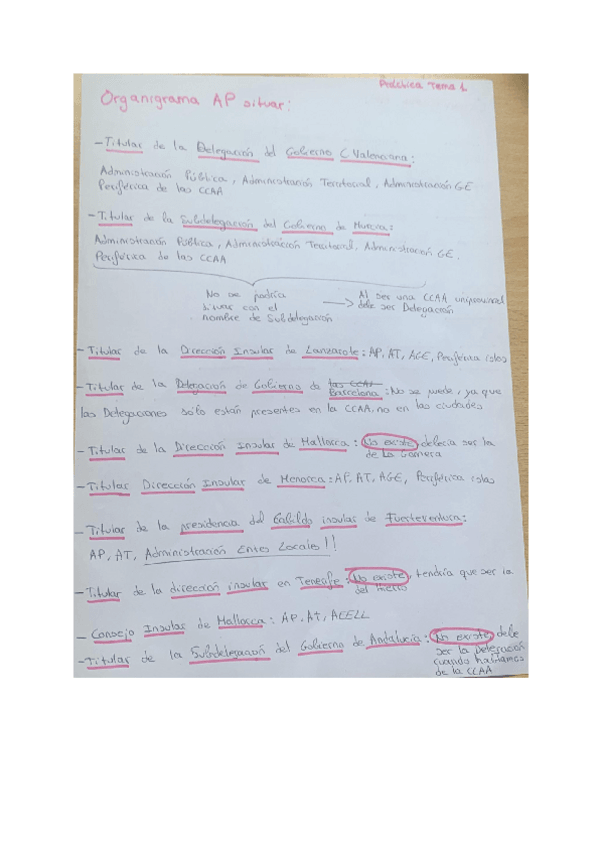 Práctica Tema 1
Organigrama AP situar:
- Titular de la Delegación del Gobierno C Valenciana:
Administración Pública, Administración Territorial, Administración GE
Periférica de las CCAA
- Titular de la Subdelegación del Gobierno de Murcia:
Administración Pública, Administración Territorial, Administración GE.
Periférica de las CCAA
No se podría
situar con el
nombre de Subdelegación
Al ser una CCAA uniprovincial
debe ser Delegación
- Titular de la Dirección Insular de Lanzarote: AP, AT, AGE, Periférica islas
- Titular de la Delegación de Gobierno de las CCAA
Barcelona: No se puede, ya que
las Delegaciones sólo están presentes en la CCAA, no en las ciudades
- Titular de la Dirección Insular de Mallorca: No existe debería ser la
de La Gomera
- Titular Dirección Insular de Menorca: AP, AT, AGE, Periférica islas
- Titular de la presidencia del Cabildo insular de Fuerteventura:
AP, AT, Administración Entes Locales!!
- Titular de la dirección insular en Tenerife: No existe, tendría que ser la
del Hierro
- Consejo Insular de Mallorca: AP, AT, AEELL
- Titular de la Subdelegación del Gobierno de Andalucía: No existe debe
ser la Delegación
cuando hablamos
de la CCAA